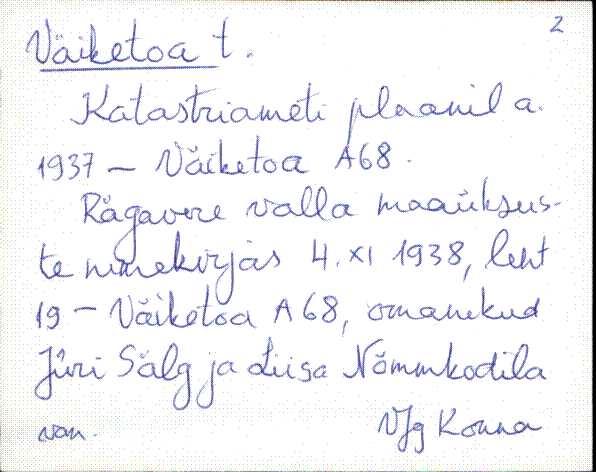 2
Väiketoa t.
Katastriameti plaanil a.
1937 – Väiketoa A68.
Rägavere valla maaüksus-
te nimekirjas 4. XI 1938, leht
19 – Väiketoa A68, omanikud
Jüri Sälg ja Liisa Nõmmkodila
van. VJg Konna